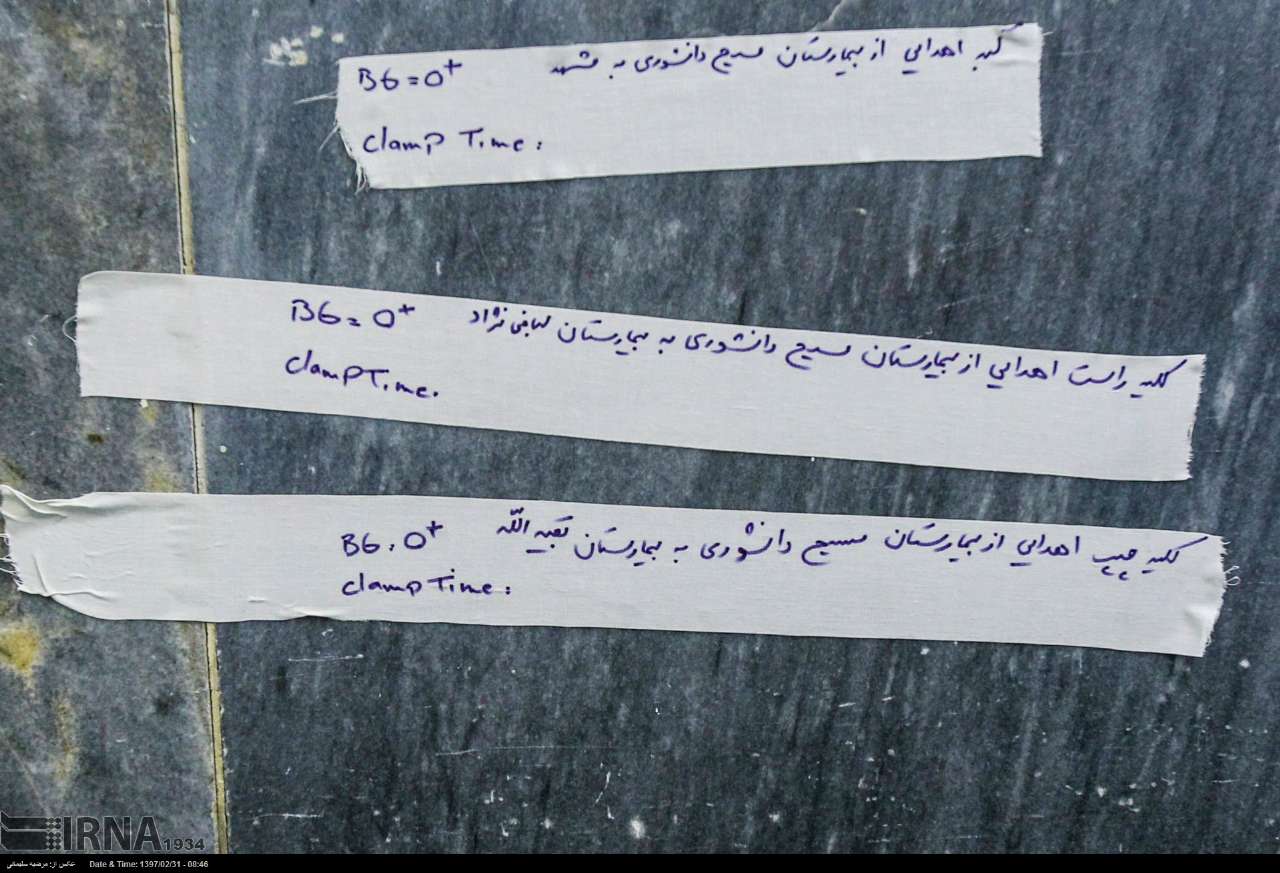 کبد اهدایی از بیمارستان مسیح دانشوری به مشهد BG = O+
Clamp Time:
کلیه راست اهدایی از بیمارستان مسیح دانشوری به بیمارستان لبافی نژاد BG = O+
Clamp Time.
کلیه چپ اهدایی از بیمارستان مسیح دانشوری به بیمارستان بقیه الله BG: O+
Clamp Time:
IRNA 1934
عکاس از: مرضیه سلیمانی Date & Time: 1397/02/31 - 08:46